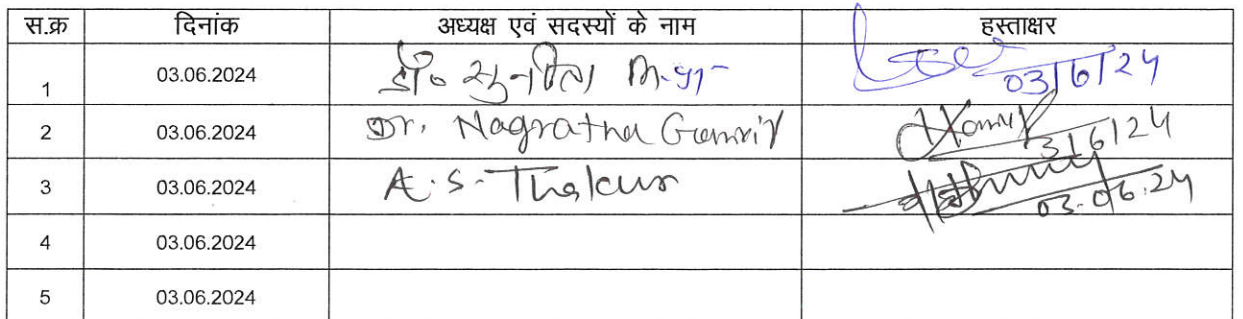 स.क्र दिनांक अध्यक्ष एवं सदस्यों के नाम हस्ताक्षर
1 03.06.2024 डॉ० सुनीता 03/6/24
2 03.06.2024 Dr. Nagratna Ganvir 3/6/24
3 03.06.2024 A.S. Thakur 03.06.24
4 03.06.2024
5 03.06.2024